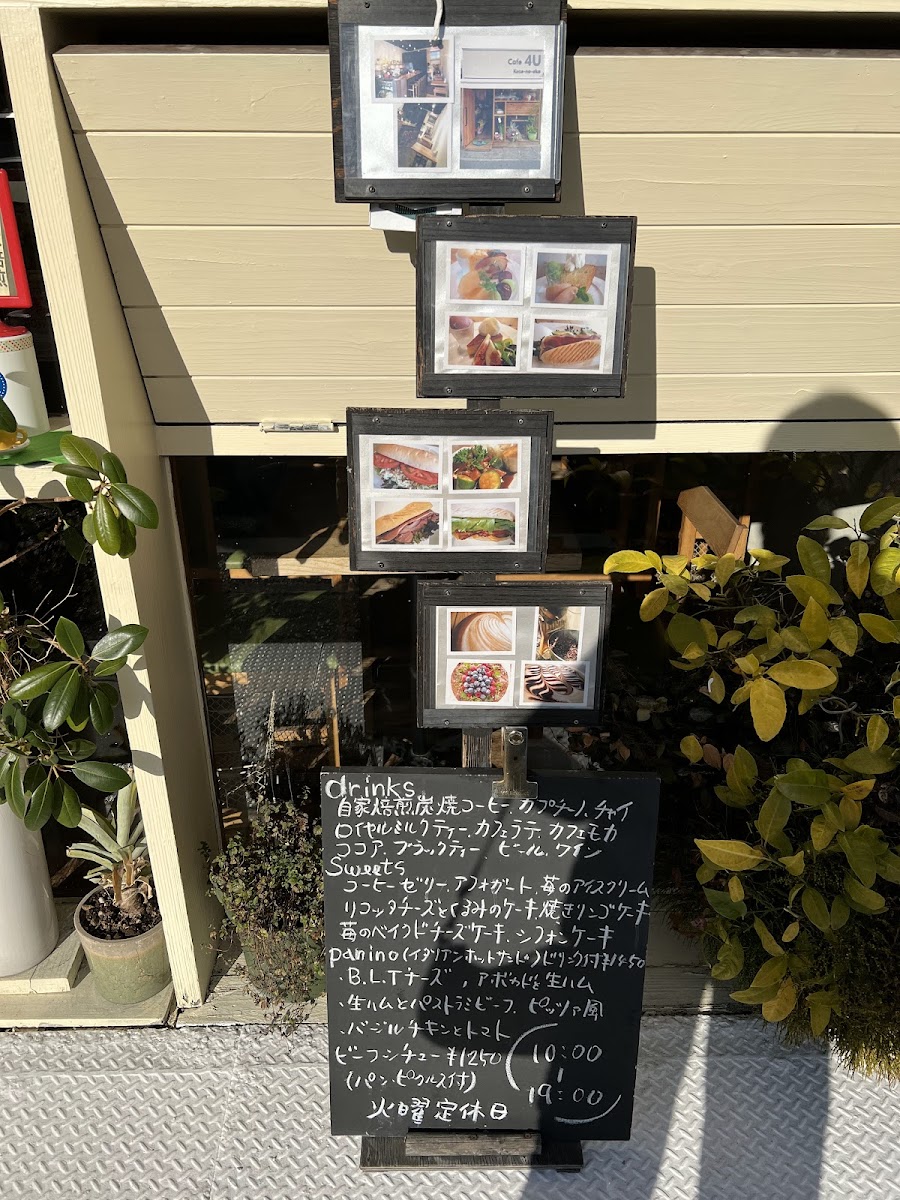 Cafe 4U
drinks
自家焙煎炭焼コーヒー、カプチーノ、チャイ
ロイヤルミルクティー、カフェラテ、カフェモカ
ココア、ブラックティー ビール、ワイン
Sweets
コーヒーゼリー、アフォガート、苺のアイスクリーム
リコッタチーズとくるみのケーキ 焼きリンゴケーキ
苺のベイクドチーズケーキ、シフォンケーキ
panino(イタリアンホットサンド)ドリンク付¥1450
・B.L.Tチーズ ,アボカドと生ハム
・生ハムとパストラミビーフ, ピッツァ風
・バジルチキンとトマト
ビーフシチュー ¥1250
(パン・ピクルス付)
10:00
|
19:00
火曜定休日